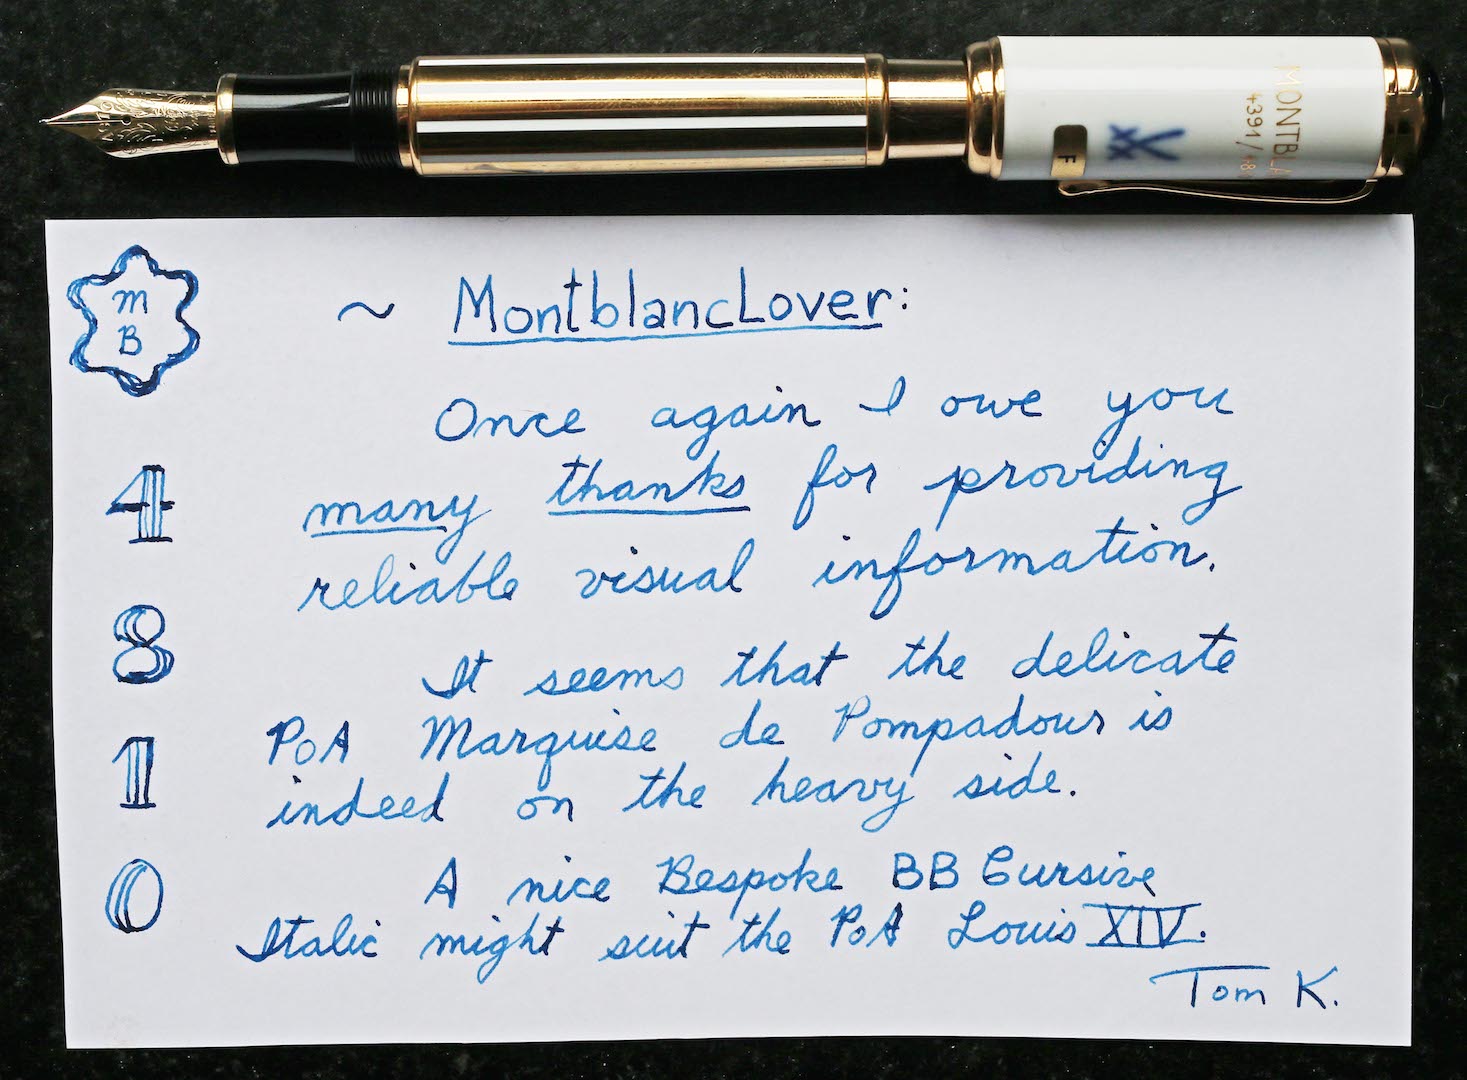 MONTBLA
4391/48
F
m
B
4
8
1
0
~ MontblancLover:
Once again I owe you
many thanks for providing
reliable visual information.
It seems that the delicate
PoA Marquise de Pompadour is
indeed on the heavy side.
A nice Bespoke BB Cursive
Italic might suit the PoA Louis XIV.
Tom K.